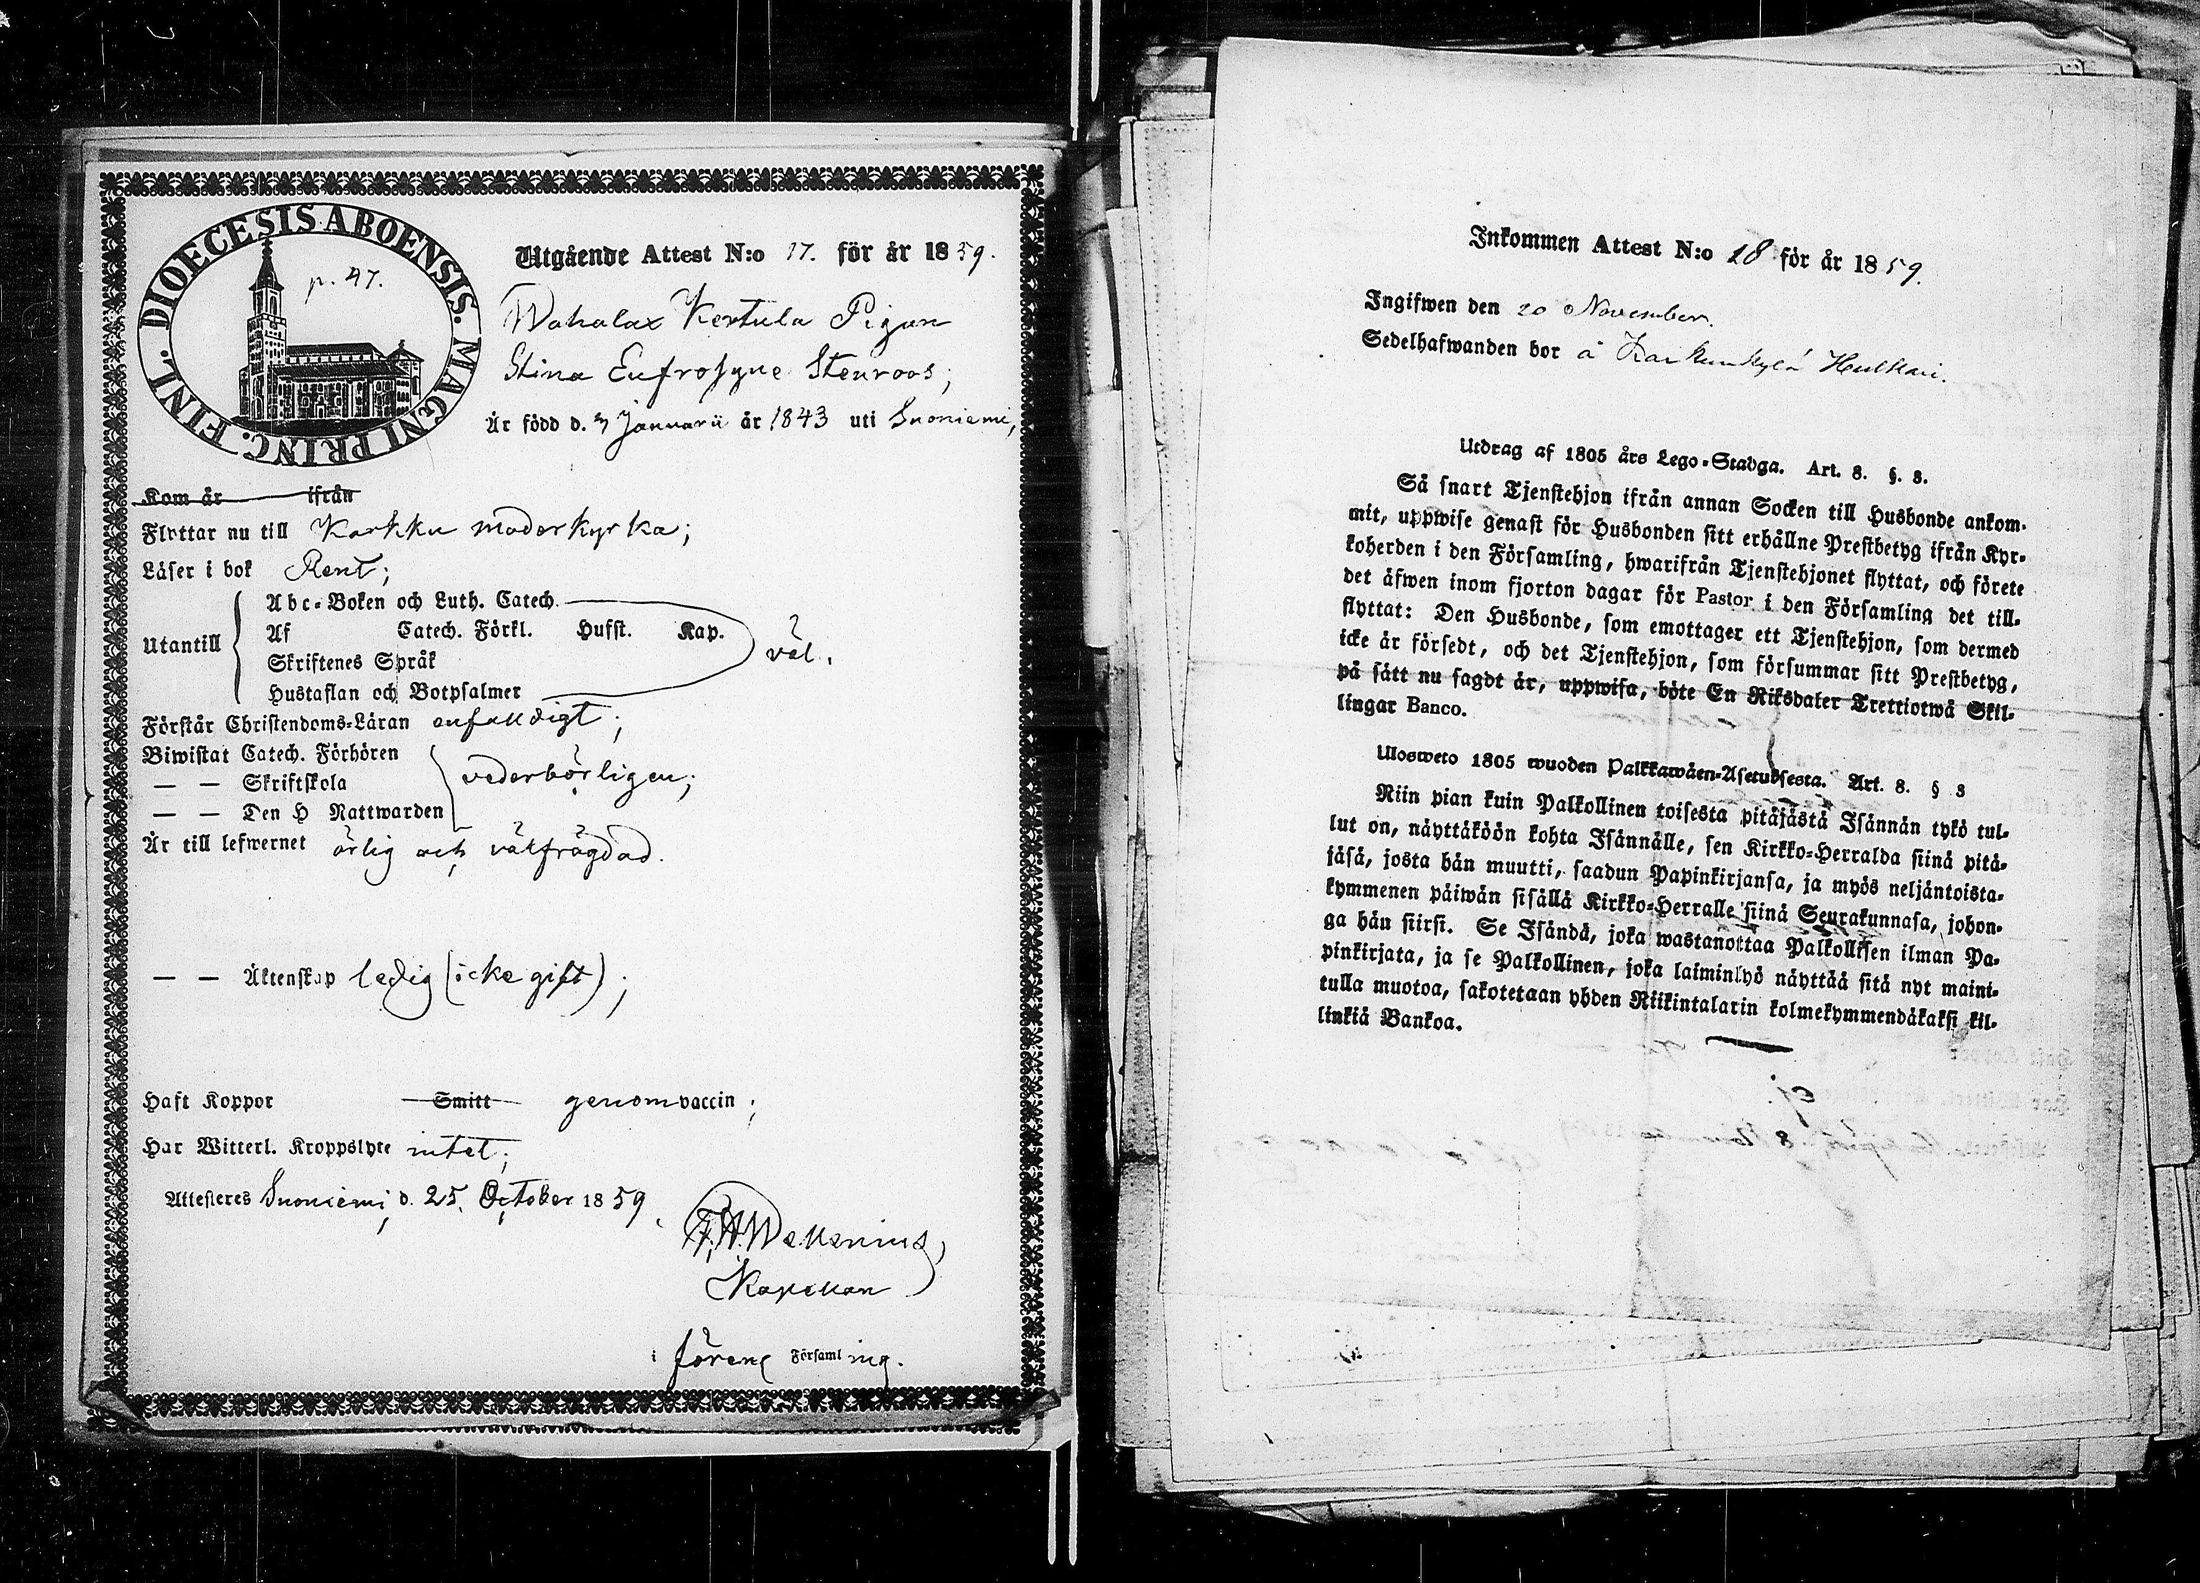 DIOECESIS ABOENSIS. MAGNI PRINC. FINL.
p. 47.
Utgående Attest N:o 17. för år 1859.
Wahalax Kertula Pigan
Stina Eufrosyne Stenroos;
Är född d. 7 Januarii år 1843 uti Suoniemi,
Kom år ifrån
Flyttar nu till Karkku moderkyrka;
Läser i bok Rent;
Utantill
Abc-Boken och Luth. Catech.
Af Catech. Förkl. Hufst. Kap.
Skriftenes Språk
Hustaflan och Botpsalmer
väl.
Förstår Christendoms-Läran enfaldigt;
Biwistat Catech. Förhören
— — Skriftskola
— — Den H Nattwarden
vederbörligen;
Är till lefwernet ärlig och välfrägdad.
— — Äktenskap ledig (icke gift);
Haft Koppor Smitt genom vaccin;
Har Witterl. Kroppslyte intet;
Attesteras Suoniemi, d. 25. October 1859.
Kapellan
i förene Församling.
Inkommen Attest N:o 18 för år 1859.
Ingifwen den 20 November.
Sedelhafwanden bor å
Utdrag af 1805 års Lego-Stadga. Art. 8. §. 3.
Så snart Tjenstehjon ifrån annan Socken till Husbonde ankom-
mit, uppwise genast för Husbonden sitt erhållne Prestbetyg ifrån Kyr-
koherden i den Församling, hwarifrån Tjenstehjonet flyttat, och förete
det äfwen inom fjorton dagar för Pastor i den Församling det till-
flyttat: Den Husbonde, som emottager ett Tjenstehjon, som dermed
icke är försedt, och det Tjenstehjon, som försummar sitt Prestbetyg,
på sätt nu sagdt är, uppwisa, böte En Riksdaler Trettiotwå Skil-
lingar Banco.
Ulosweto 1805 wuoden Palkkawäen-Asetuksesta. Art. 8. § 3
Niin pian kuin Palkollinen toisesta pitäjästä Isännän tykö tul-
lut on, näyttäköön kohta Isännälle, sen Kirkko-Herralda siinä pitä-
jäsä, josta hän muutti, saadun Papinkirjansa, ja myös neljäntoista-
kymmenen päiwän sisällä Kirkko-Herralle siinä Seurakunnasa, johon-
ga hän siirsi. Se Isändä, joka wastanottaa Palkollisen ilman Pa-
pinkirjata, ja se Palkollinen, joka laiminlyö näyttää sitä nyt maini-
tulla muotoa, sakotetaan yhden Riikintalarin kolmekymmendäkaksi kil-
linkiä Bankoa.